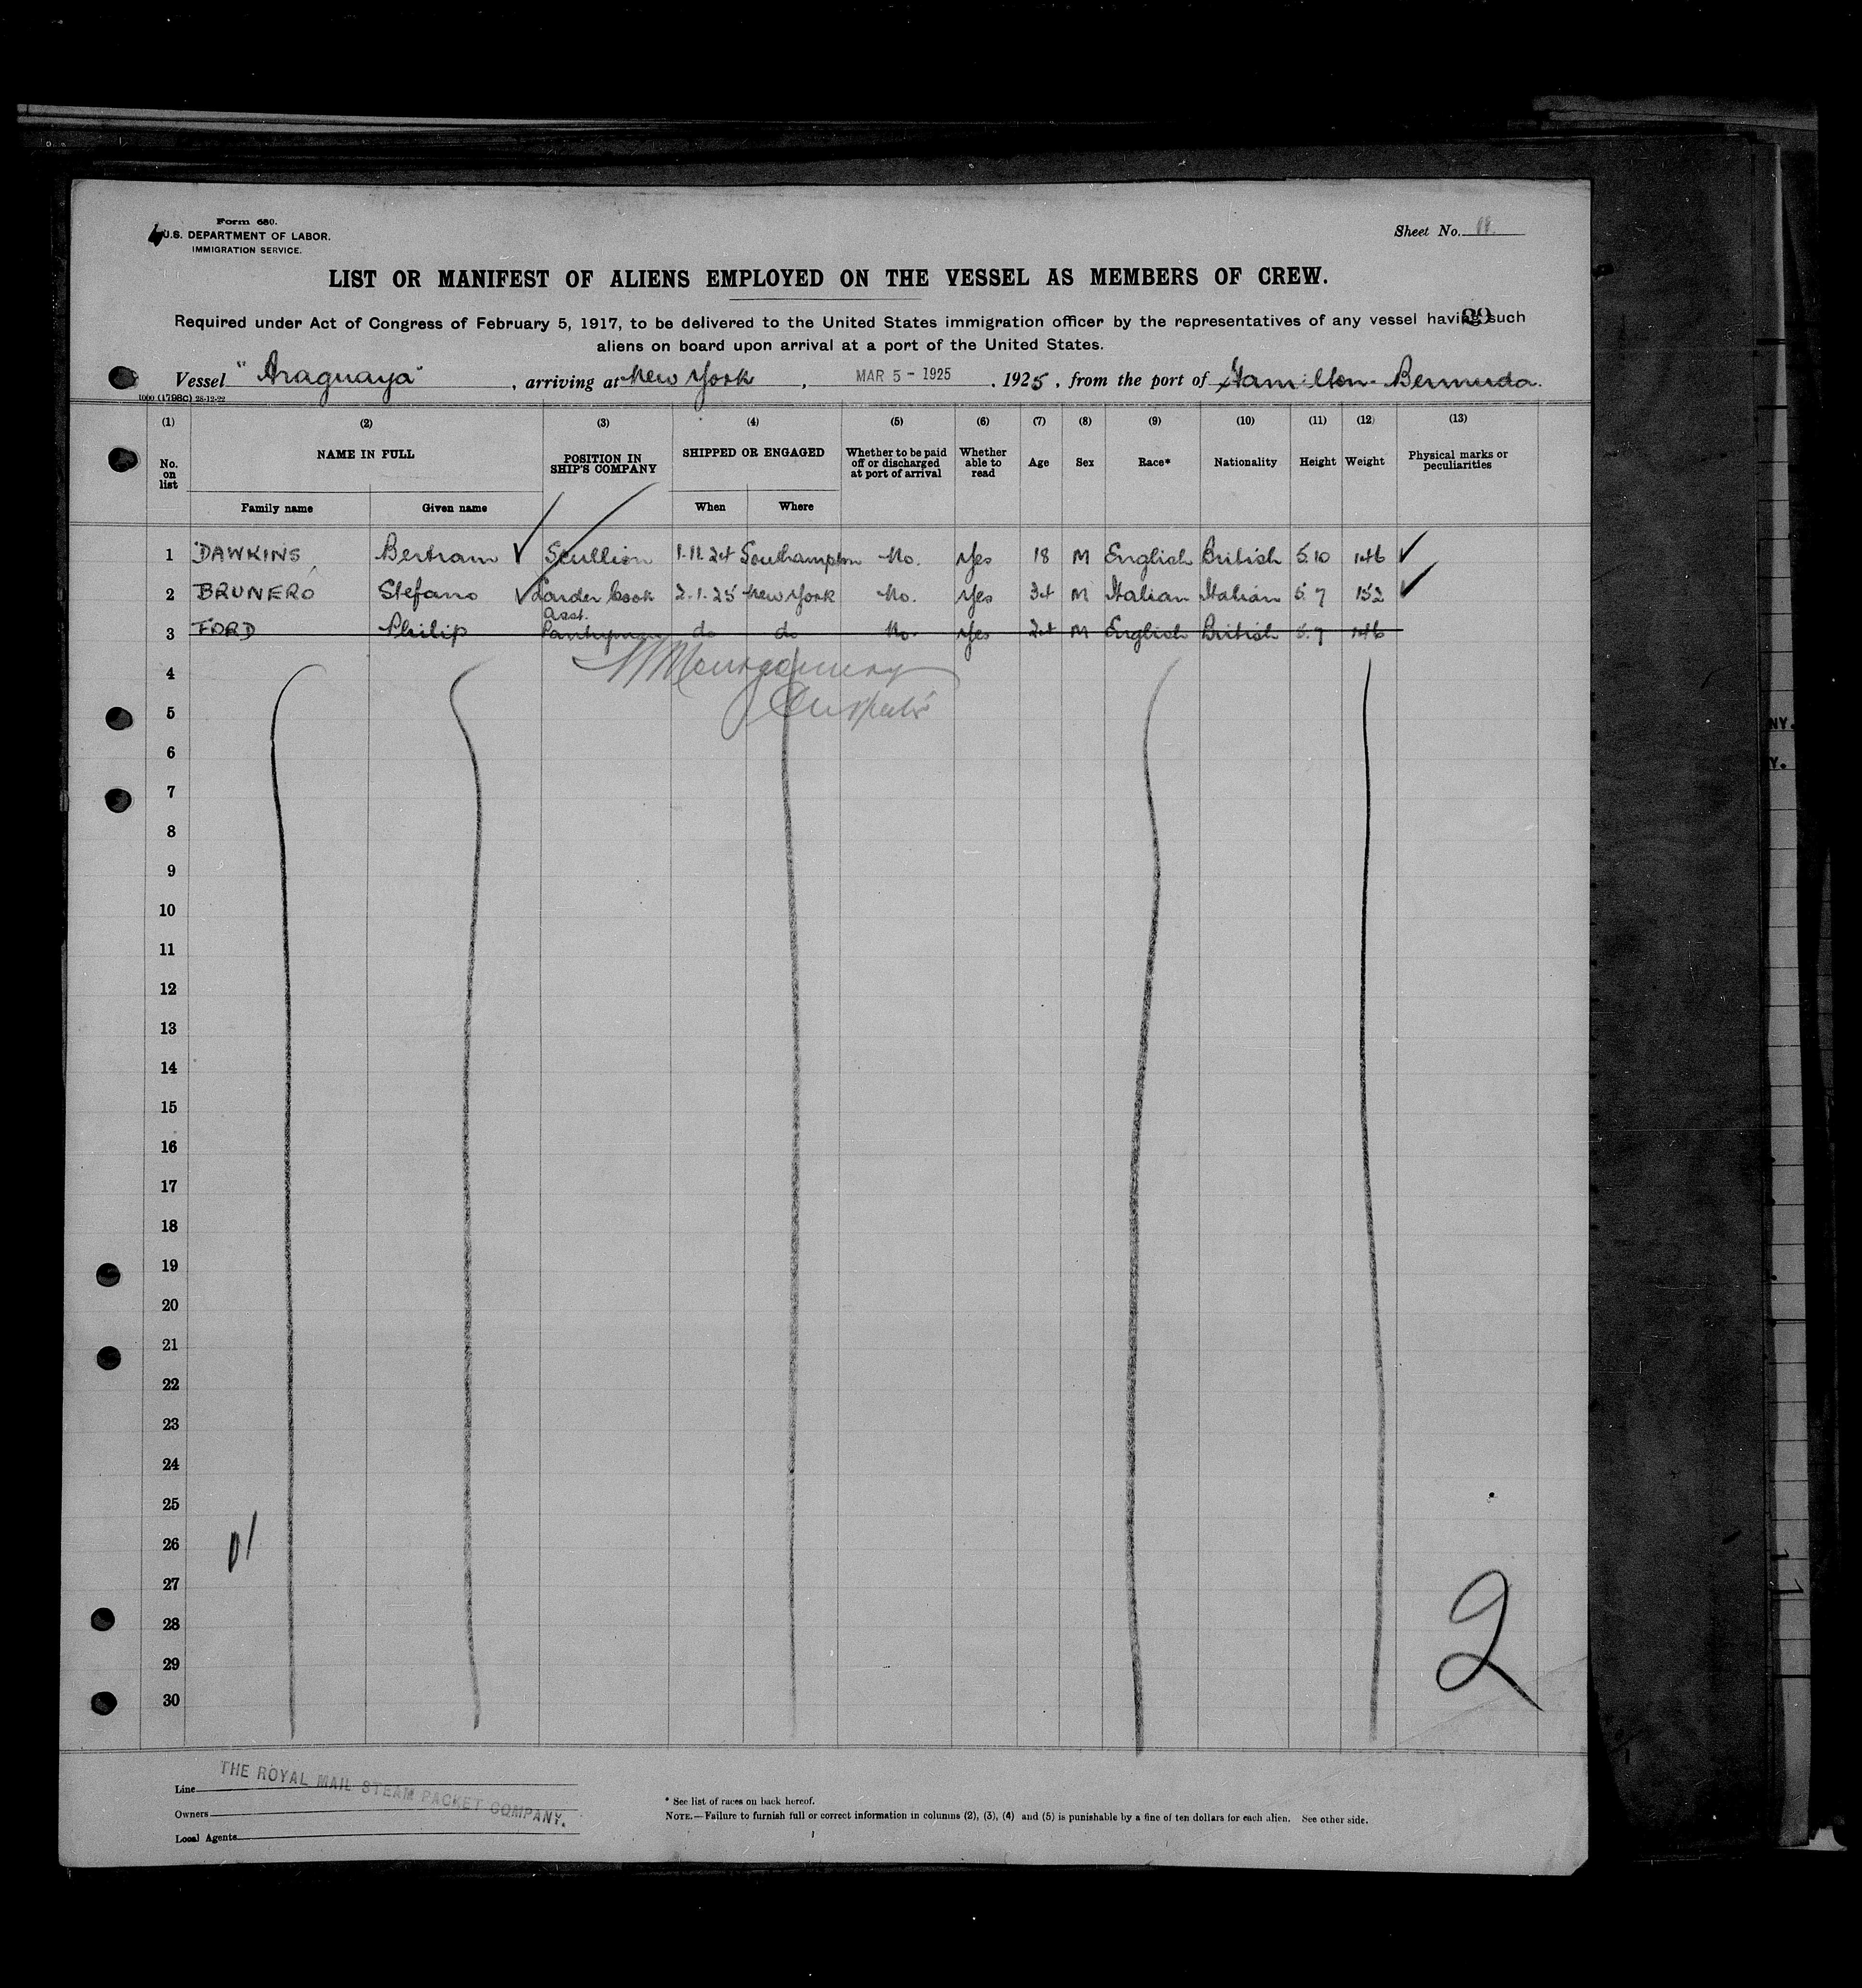 Form 680.
U.S. DEPARTMENT OF LABOR.
IMMIGRATION SERVICE.
Sheet No.
LIST OR MANIFEST OF ALIENS EMPLOYED ON THE VESSEL AS MEMBERS OF CREW.
Required under Act of Congress of February 5, 1917, to be delivered to the United States immigration officer by the representatives of any vessel having such
aliens on board upon arrival at a port of the United States.
Vessel "Araguaya", arriving at New York, MAR 5 - 1925, 1925, from the port of Hamilton Bermuda.
1000 (1798C) 28-12-22
(1) (2) (3) (4) (5) (6) (7) (8) (9) (10) (11) (12) (13)
No. on list NAME IN FULL POSITION IN SHIP'S COMPANY SHIPPED OR ENGAGED Whether to be paid off or discharged at port of arrival Whether able to read Age Sex Race* Nationality Height Weight Physical marks or peculiarities
Family name Given name When Where
1 DAWKINS Bertram Scullion 1.11.24 Southampton No. Yes 18 M English British 5.10 146
2 BRUNERO Stefano Larder Cook 2.1.25 New York No. Yes 34 M Italian Italian 5.7 152
3 FORD Philip Asst. Pantryman do do No. Yes 24 M English British 5.7 146
4 Montgomery
5 Inspector
6
7
8
9
10
11
12
13
14
15
16
17
18
19
20
21
22
23
24
25
26
27
28
29
30
2
Line THE ROYAL MAIL STEAM PACKET COMPANY.
Owners
Local Agents
* See list of races on back hereof.
NOTE.—Failure to furnish full or correct information in columns (2), (3), (4) and (5) is punishable by a fine of ten dollars for each alien. See other side.